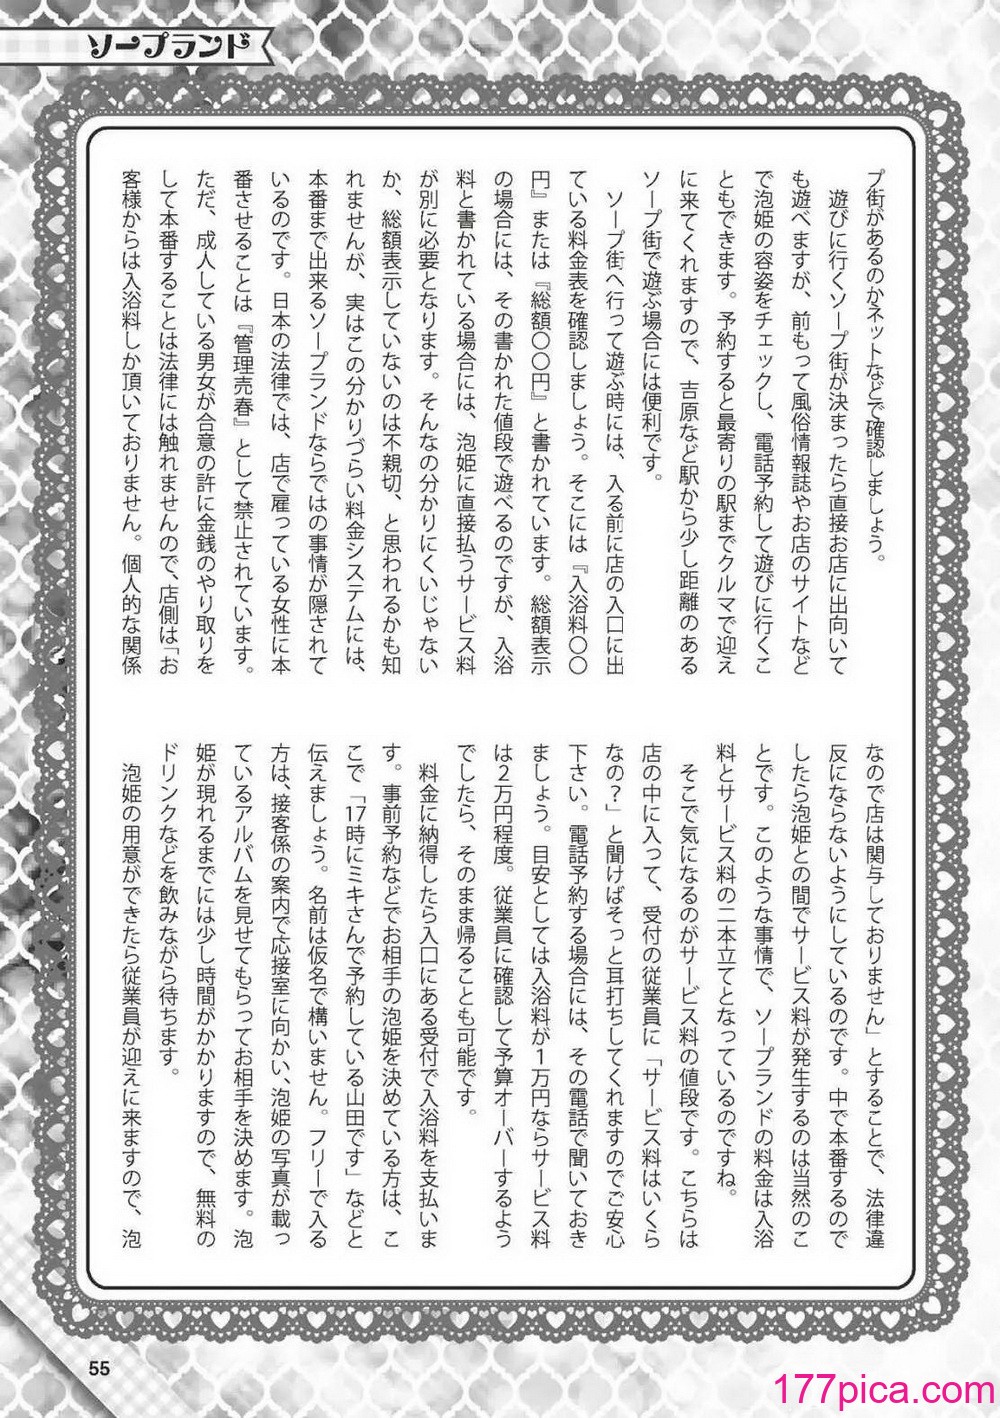 ソープランド
プ街があるのかネットなどで確認しましょう。
遊びに行くソープ街が決まったら直接お店に出向いて
も遊べますが、前もって風俗情報誌やお店のサイトなど
で泡姫の容姿をチェックし、電話予約して遊びに行くこ
ともできます。予約すると最寄りの駅までクルマで迎え
に来てくれますので、吉原など駅から少し距離のある
ソープ街で遊ぶ場合には便利です。
ソープ街へ行って遊ぶ時には、入る前に店の入口に出
ている料金表を確認しましょう。そこには『入浴料〇〇
円』または『総額〇〇円』と書かれています。総額表示
の場合には、その書かれた値段で遊べるのですが、入浴
料と書かれている場合には、泡姫に直接払うサービス料
が別に必要となります。そんなの分かりにくいじゃない
か、総額表示していないのは不親切、と思われるかも知
れませんが、実はこの分かりづらい料金システムには、
本番まで出来るソープランドならではの事情が隠されて
いるのです。日本の法律では、店で雇っている女性に本
番させることは『管理売春』として禁止されています。
ただ、成人している男女が合意の許に金銭のやり取りを
して本番することは法律には触れませんので、店側は「お
客様からは入浴料しか頂いておりません。個人的な関係
なので店は関与しておりません」とすることで、法律違
反にならないようにしているのです。中で本番するので
したら泡姫との間でサービス料が発生するのは当然のこ
とです。このような事情で、ソープランドの料金は入浴
料とサービス料の二本立てとなっているのですね。
そこで気になるのがサービス料の値段です。こちらは
店の中に入って、受付の従業員に「サービス料はいくら
なの？」と聞けばそっと耳打ちしてくれますのでご安心
下さい。電話予約する場合には、その電話で聞いておき
ましょう。目安としては入浴料が1万円ならサービス料
は2万円程度。従業員に確認して予算オーバーするよう
でしたら、そのまま帰ることも可能です。
料金に納得したら入口にある受付で入浴料を支払いま
す。事前予約などでお相手の泡姫を決めている方は、こ
こで「17時にミキさんで予約している山田です」などと
伝えましょう。名前は仮名で構いません。フリーで入る
方は、接客係の案内で応接室に向かい、泡姫の写真が載っ
ているアルバムを見せてもらってお相手を決めます。泡
姫が現れるまでには少し時間がかかりますので、無料の
ドリンクなどを飲みながら待ちます。
泡姫の用意ができたら従業員が迎えに来ますので、泡
55
177pica.com